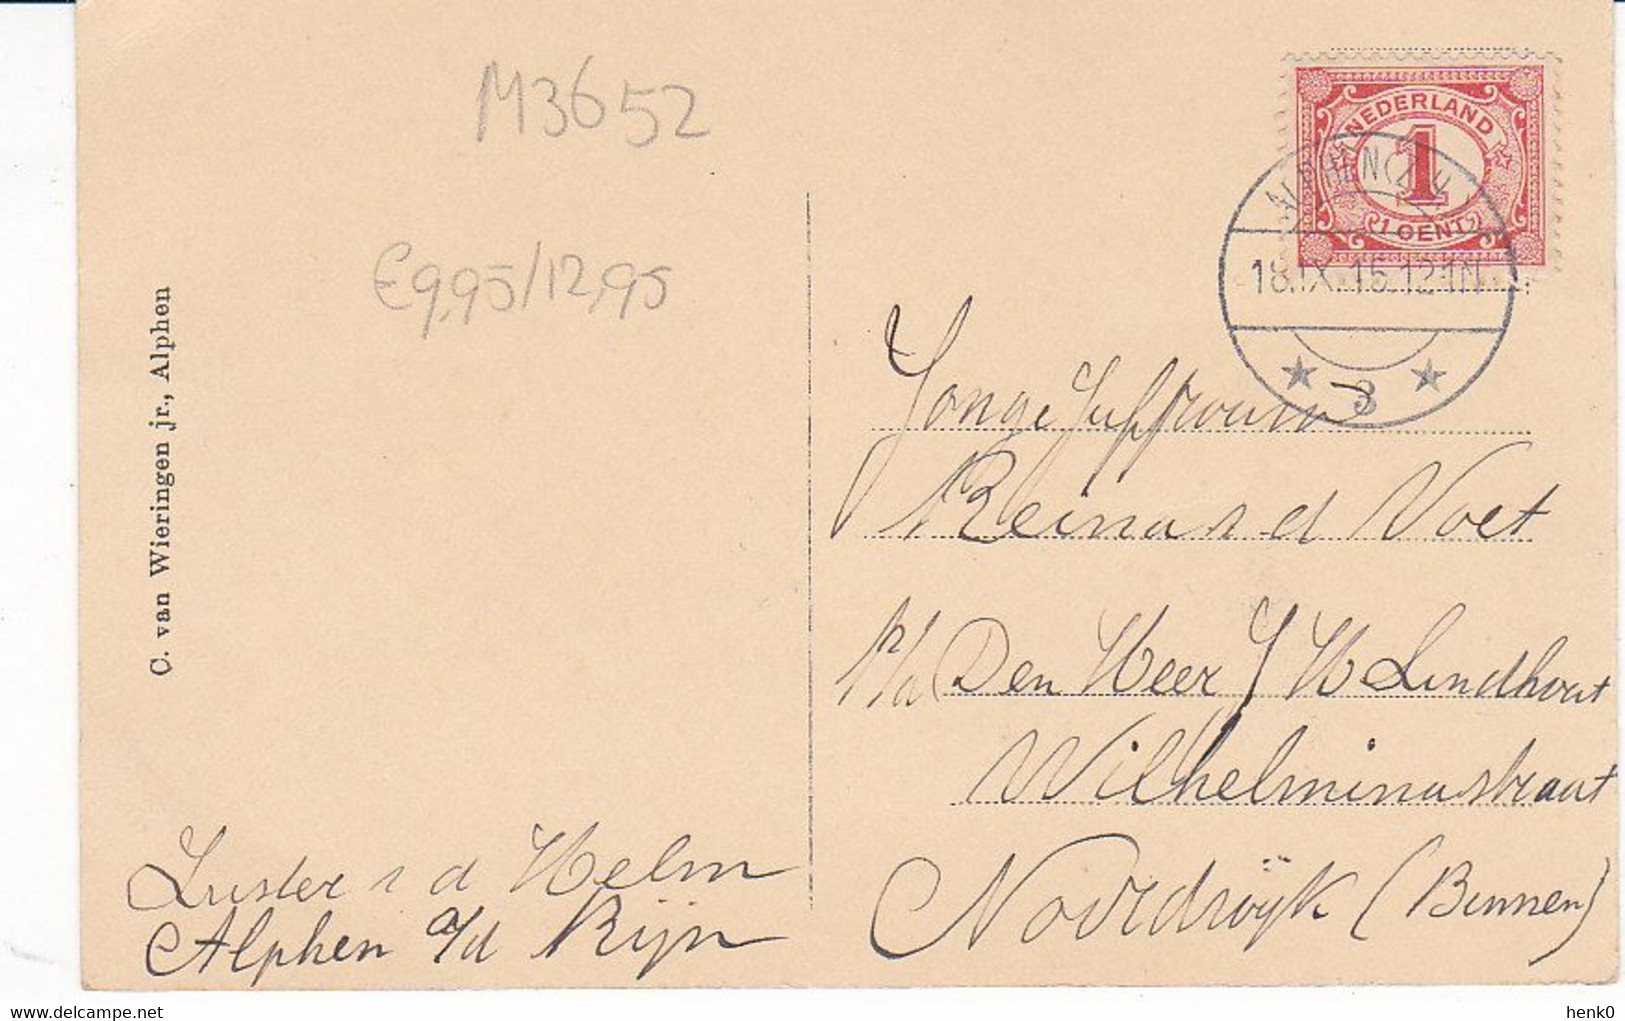 M3652
€9,95/12,95
C. van Wieringen jr., Alphen
NEDERLAND
1
1 CENT
ALPHEN (Z.H.)
18.IX.15.12-1N
3
Jonge Juffrouw
Reina v d Voet
P/a Den Heer J W Lindhout
Wilhelminastraat
Noordwijk (Binnen)
Zuster v d Helm
Alphen a/d Rijn
henk0